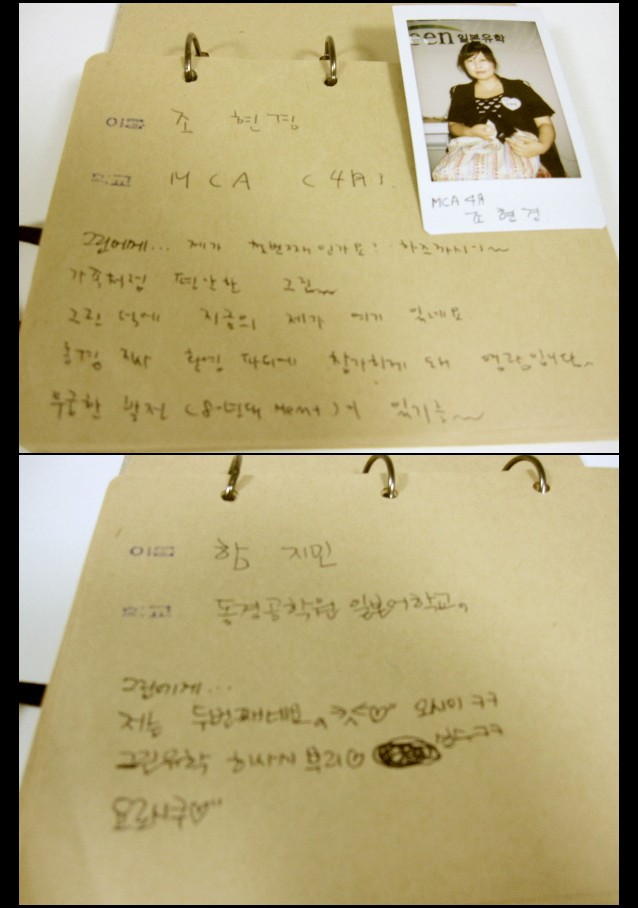 een 일본유학
MCA 4月
조 현경
이름 조 현경
학교 MCA (4月).
그린에게... 제가 첫번째인가요?
가족처럼 편안한 그린~
그린 덕에 지금의 제가 여기 있네요
환영 파티에 참가하게 돼 영광입니다~
무궁한 발전 ( ) 이 있기를~~
이름 함 지민
학교 동경공학원 일본어학교。
그린에게...
저는 두번째네요 ♡ 오시이 ㅋㅋ
그린유학 히사시부리♡ 실수ㅋㅋ
요로시쿠♡